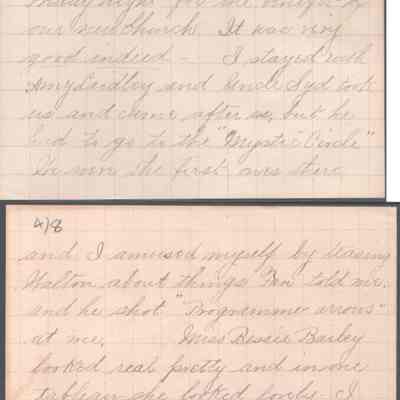 Friday night for the benefit of
our new Church. It was very
good indeed - I stayed with
Amy Dudley and Uncle Syd took
us and came after us, but he
had to go to the "Mystic Circle"
We were the first ones there
4/8
and I amused myself by teasing
Walton about things Fen told me.
and he shot "Programme arrows"
at me. Miss Bessie Barley
looked real pretty and in one
tableau she looked lovely. I